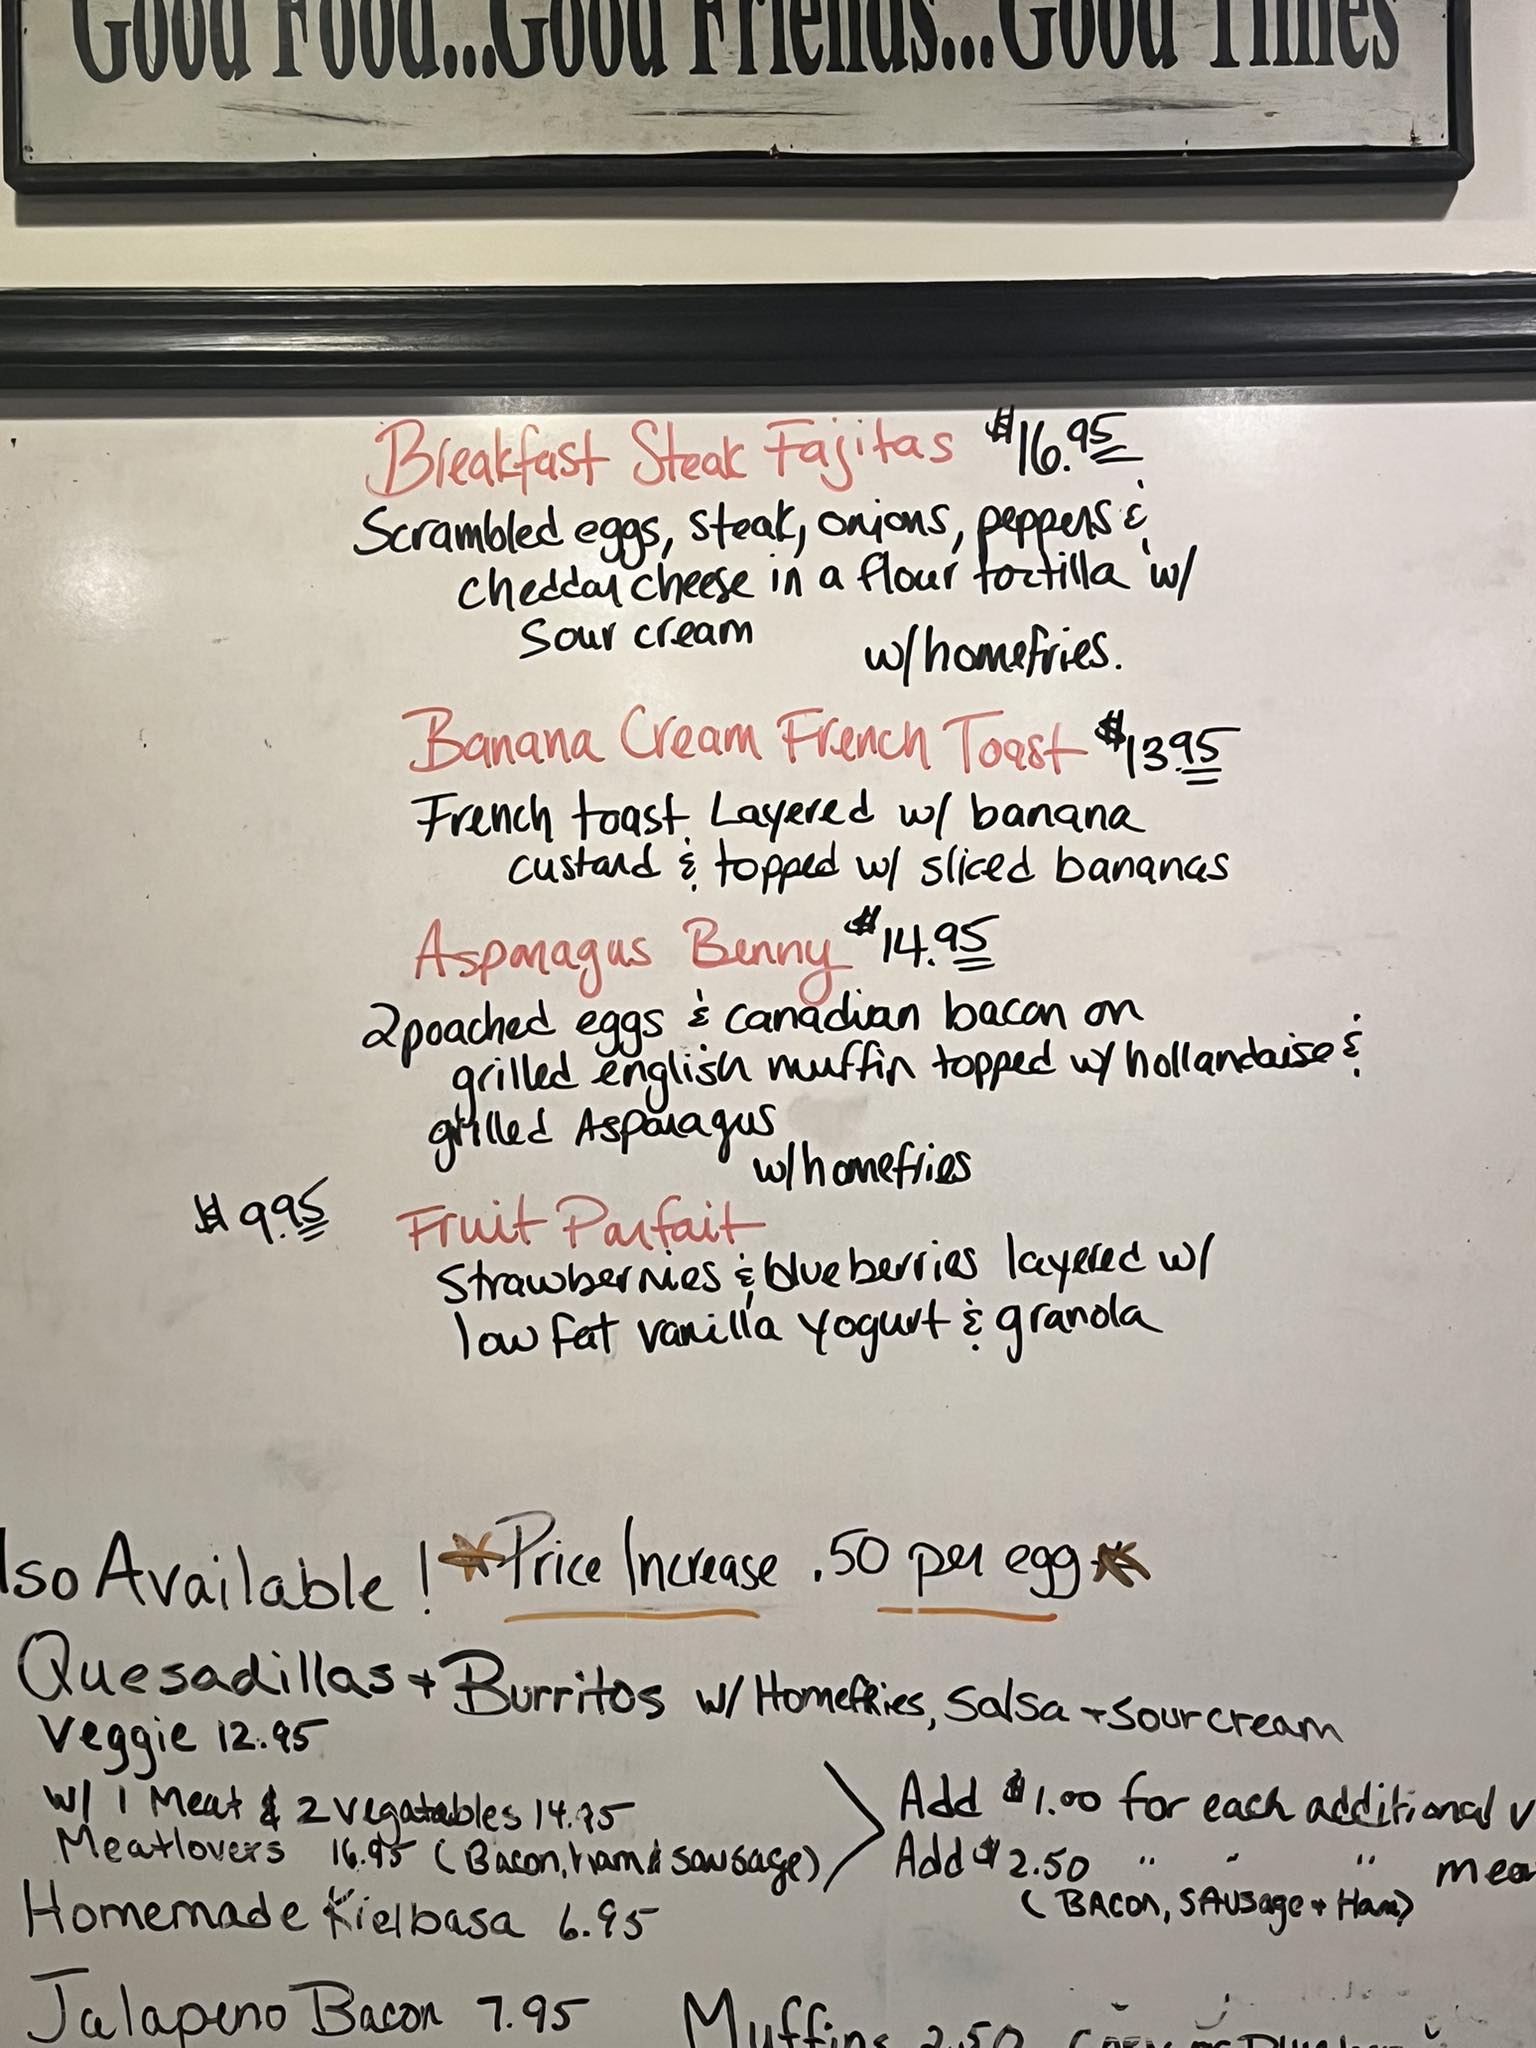 Good Food...Good Friends...Good Times
Breakfast Steak Fajitas $16.95
Scrambled eggs, steak, onions, peppers &
cheddar cheese in a flour tortilla w/
Sour cream w/homefries.
Banana Cream French Toast $13.95
French toast Layered w/ banana
custard & topped w/ sliced bananas
Asparagus Benny $14.95
2 poached eggs & canadian bacon on
grilled english muffin topped w/ hollandaise &
grilled Asparagus
w/homefries
$9.95 Fruit Parfait
Strawberries & blueberries layered w/
low fat vanilla yogurt & granola
lso Available! Price Increase .50 per egg
Quesadillas + Burritos w/ Homefries, Salsa + sour cream
Veggie 12.95
w/ 1 Meat & 2 vegatables 14.95 Add $1.00 for each additional v
Meatlovers 16.95 (Bacon, ham & sausage) Add $2.50 " " " mea
(BACON, SAUsage + Ham)
Homemade Kielbasa 6.95
Jalapeno Bacon 7.95 Muffins 2.50